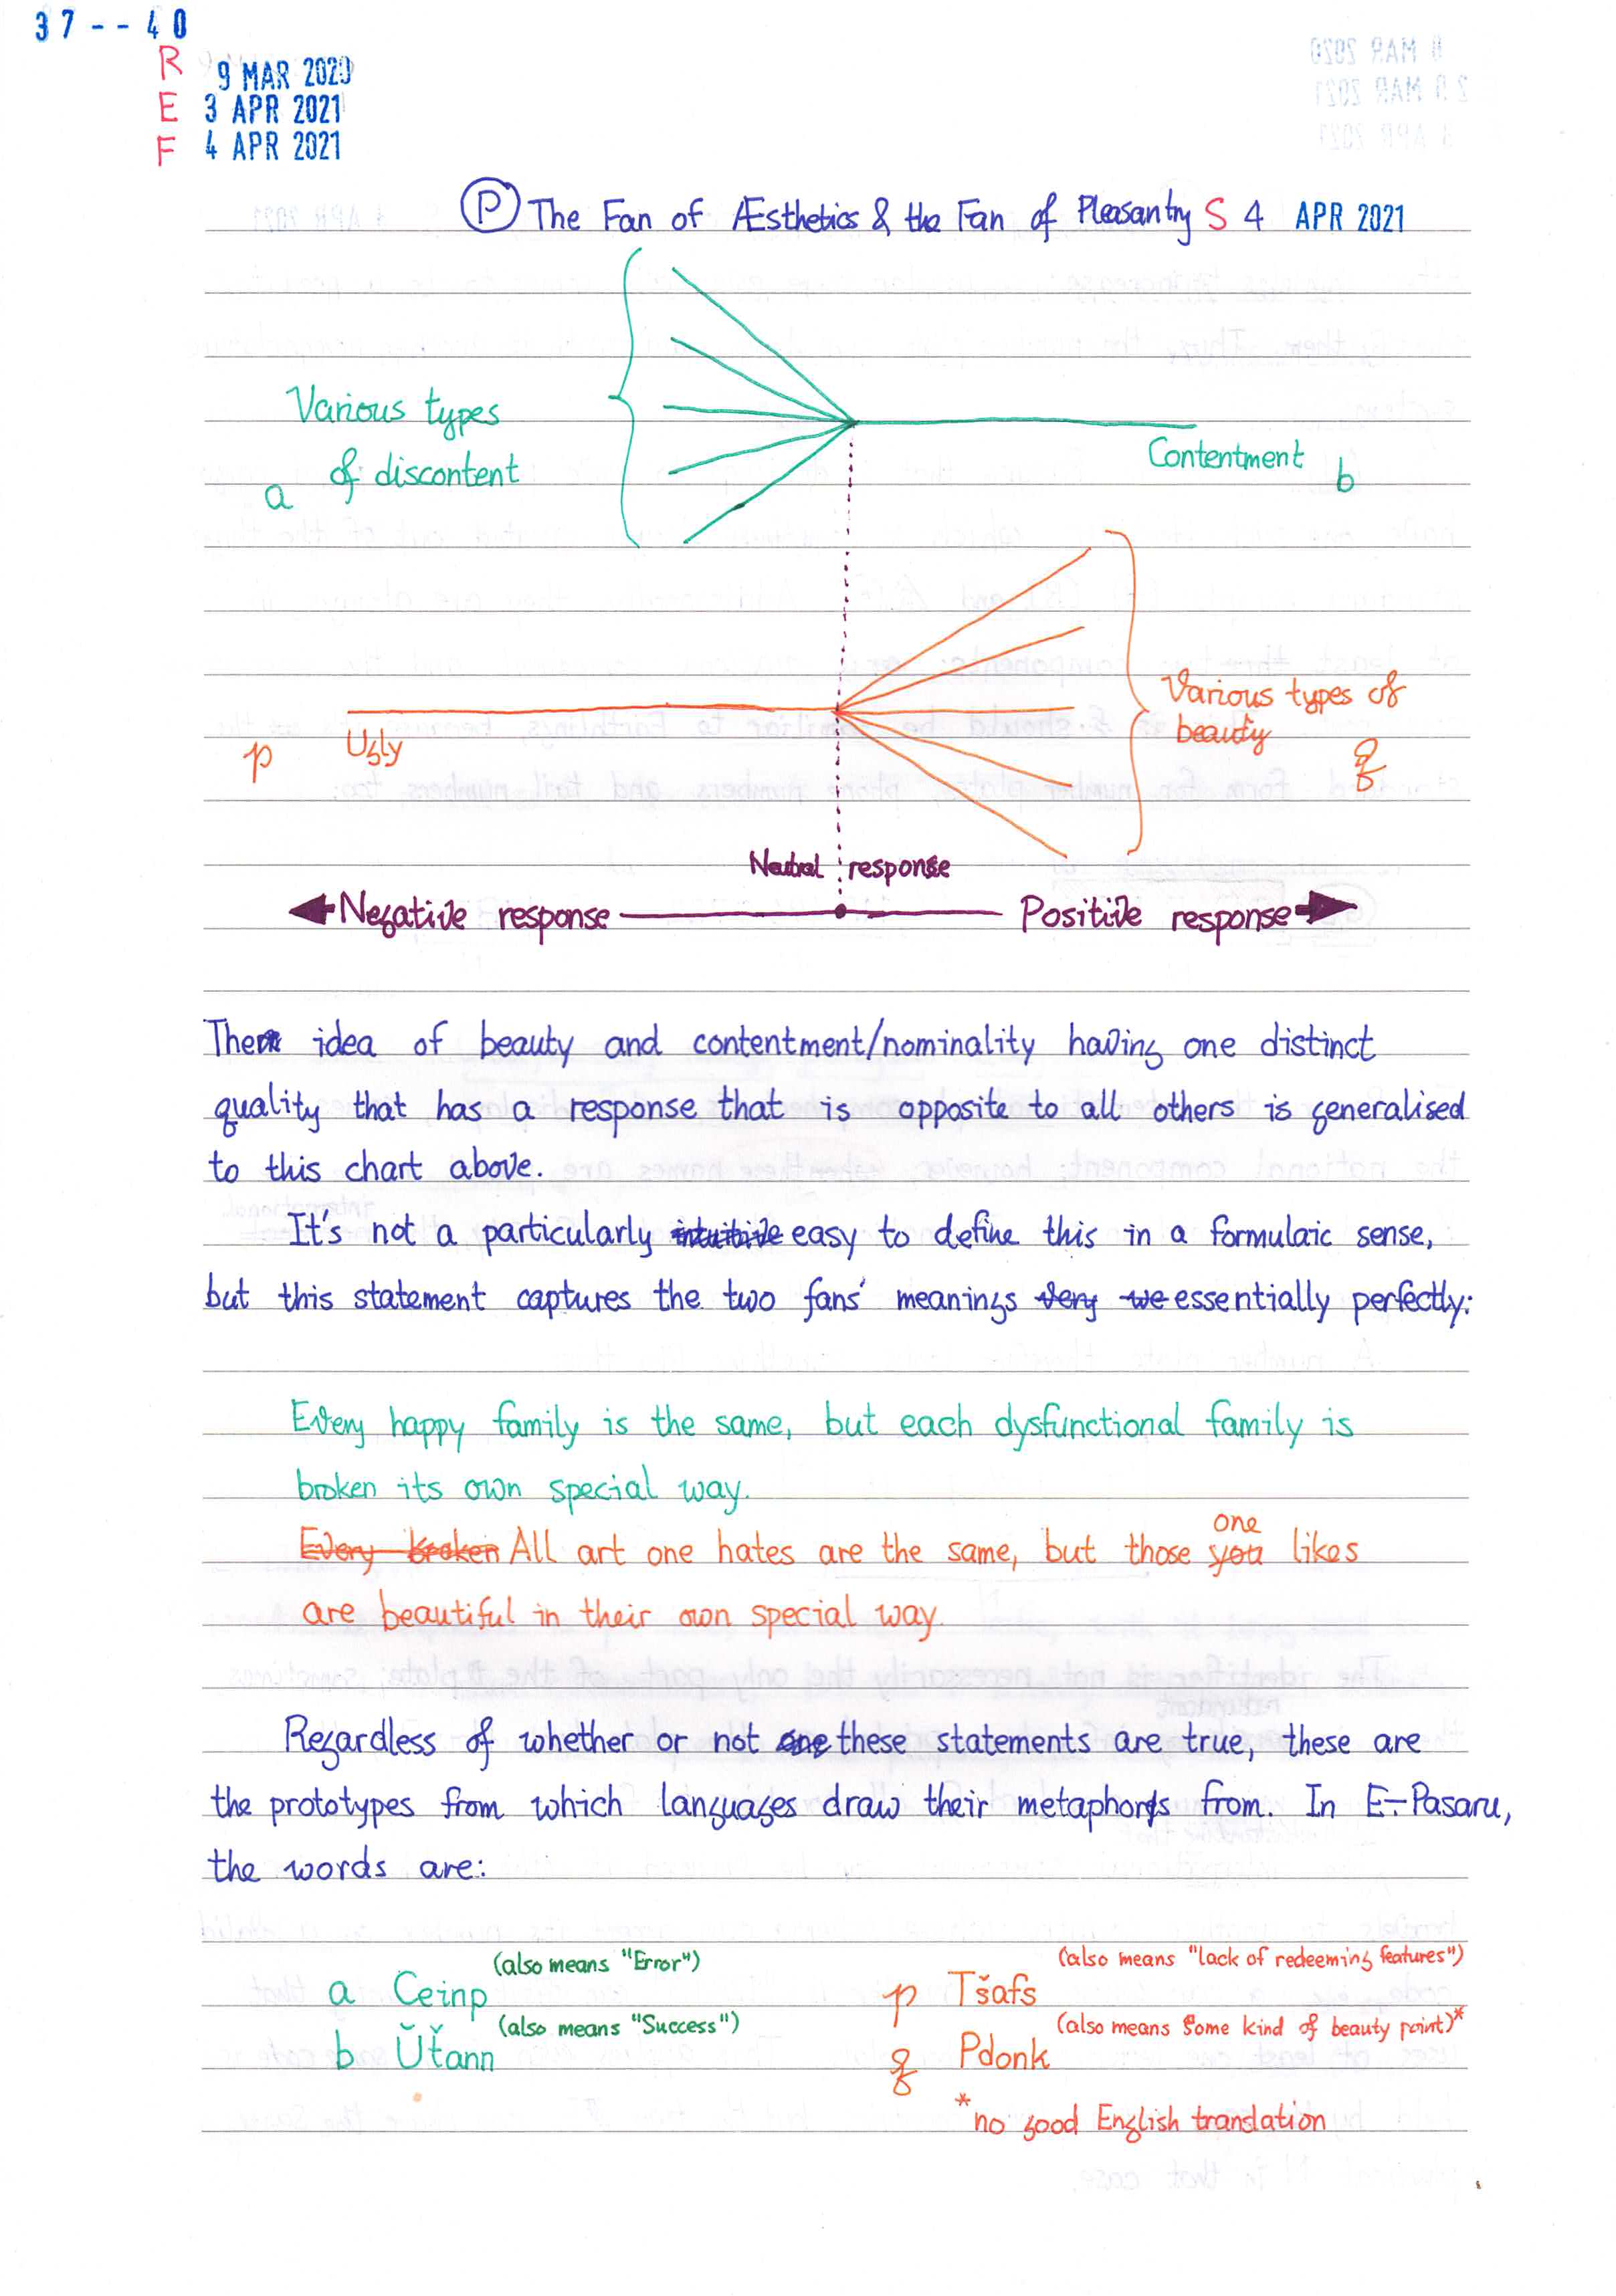 37--40
R 9 MAR 2020
E 3 APR 2021
F 4 APR 2021
P The Fan of Æsthetics & the Fan of Pleasantry S 4 APR 2021
Various types
of discontent
a
Contentment b
Various types of
beauty
q
p Ugly
Neutral response
Negative response Positive response
The idea of beauty and contentment/nominality having one distinct
quality that has a response that is opposite to all others is generalised
to this chart above.
It's not a particularly intuitive easy to define this in a formulaic sense,
but this statement captures the two fans' meanings very we essentially perfectly:
Every happy family is the same, but each dysfunctional family is
broken its own special way.
one
Every broken All art one hates are the same, but those you likes
are beautiful in their own special way.
Regardless of whether or not one these statements are true, these are
the prototypes from which languages draw their metaphors from. In E-Pasaru,
the words are:
a Ceinp (also means "Error")
b Ŭťann (also means "Success")
p Tšafs (also means "lack of redeeming features")
q Pdonk (also means some kind of beauty point)*
*no good English translation